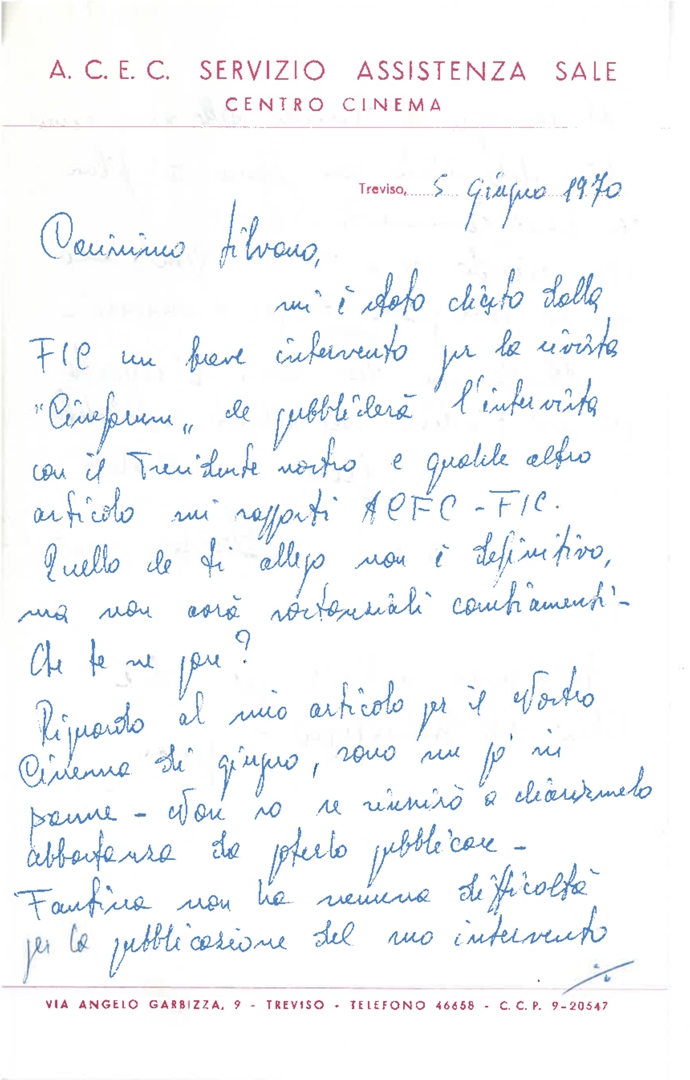 A. C. E. C. SERVIZIO ASSISTENZA SALE
CENTRO CINEMA
Treviso, 5 Giugno 1970
Carissimo Silvano,
mi è stato chiesto dalla
FIC un breve intervento per la rivista
"Cineforum" che pubblicherà l'intervista
con il Presidente nostro e qualche altro
articolo sui rapporti ACEC - FIC.
Quello che ti allego non è definitivo,
ma non avrà sostanziali cambiamenti -
Che te ne pare?
Riguardo al mio articolo per il Nostro
Cinema di giugno, sono un po' in
panne - Non so se riuscirò a chiarirmelo
abbastanza da poterlo pubblicare -
Fantina non ha nessuna difficoltà
per la pubblicazione del suo intervento
./.
VIA ANGELO GARBIZZA, 9 - TREVISO - TELEFONO 46658 - C. C. P. 9-20547